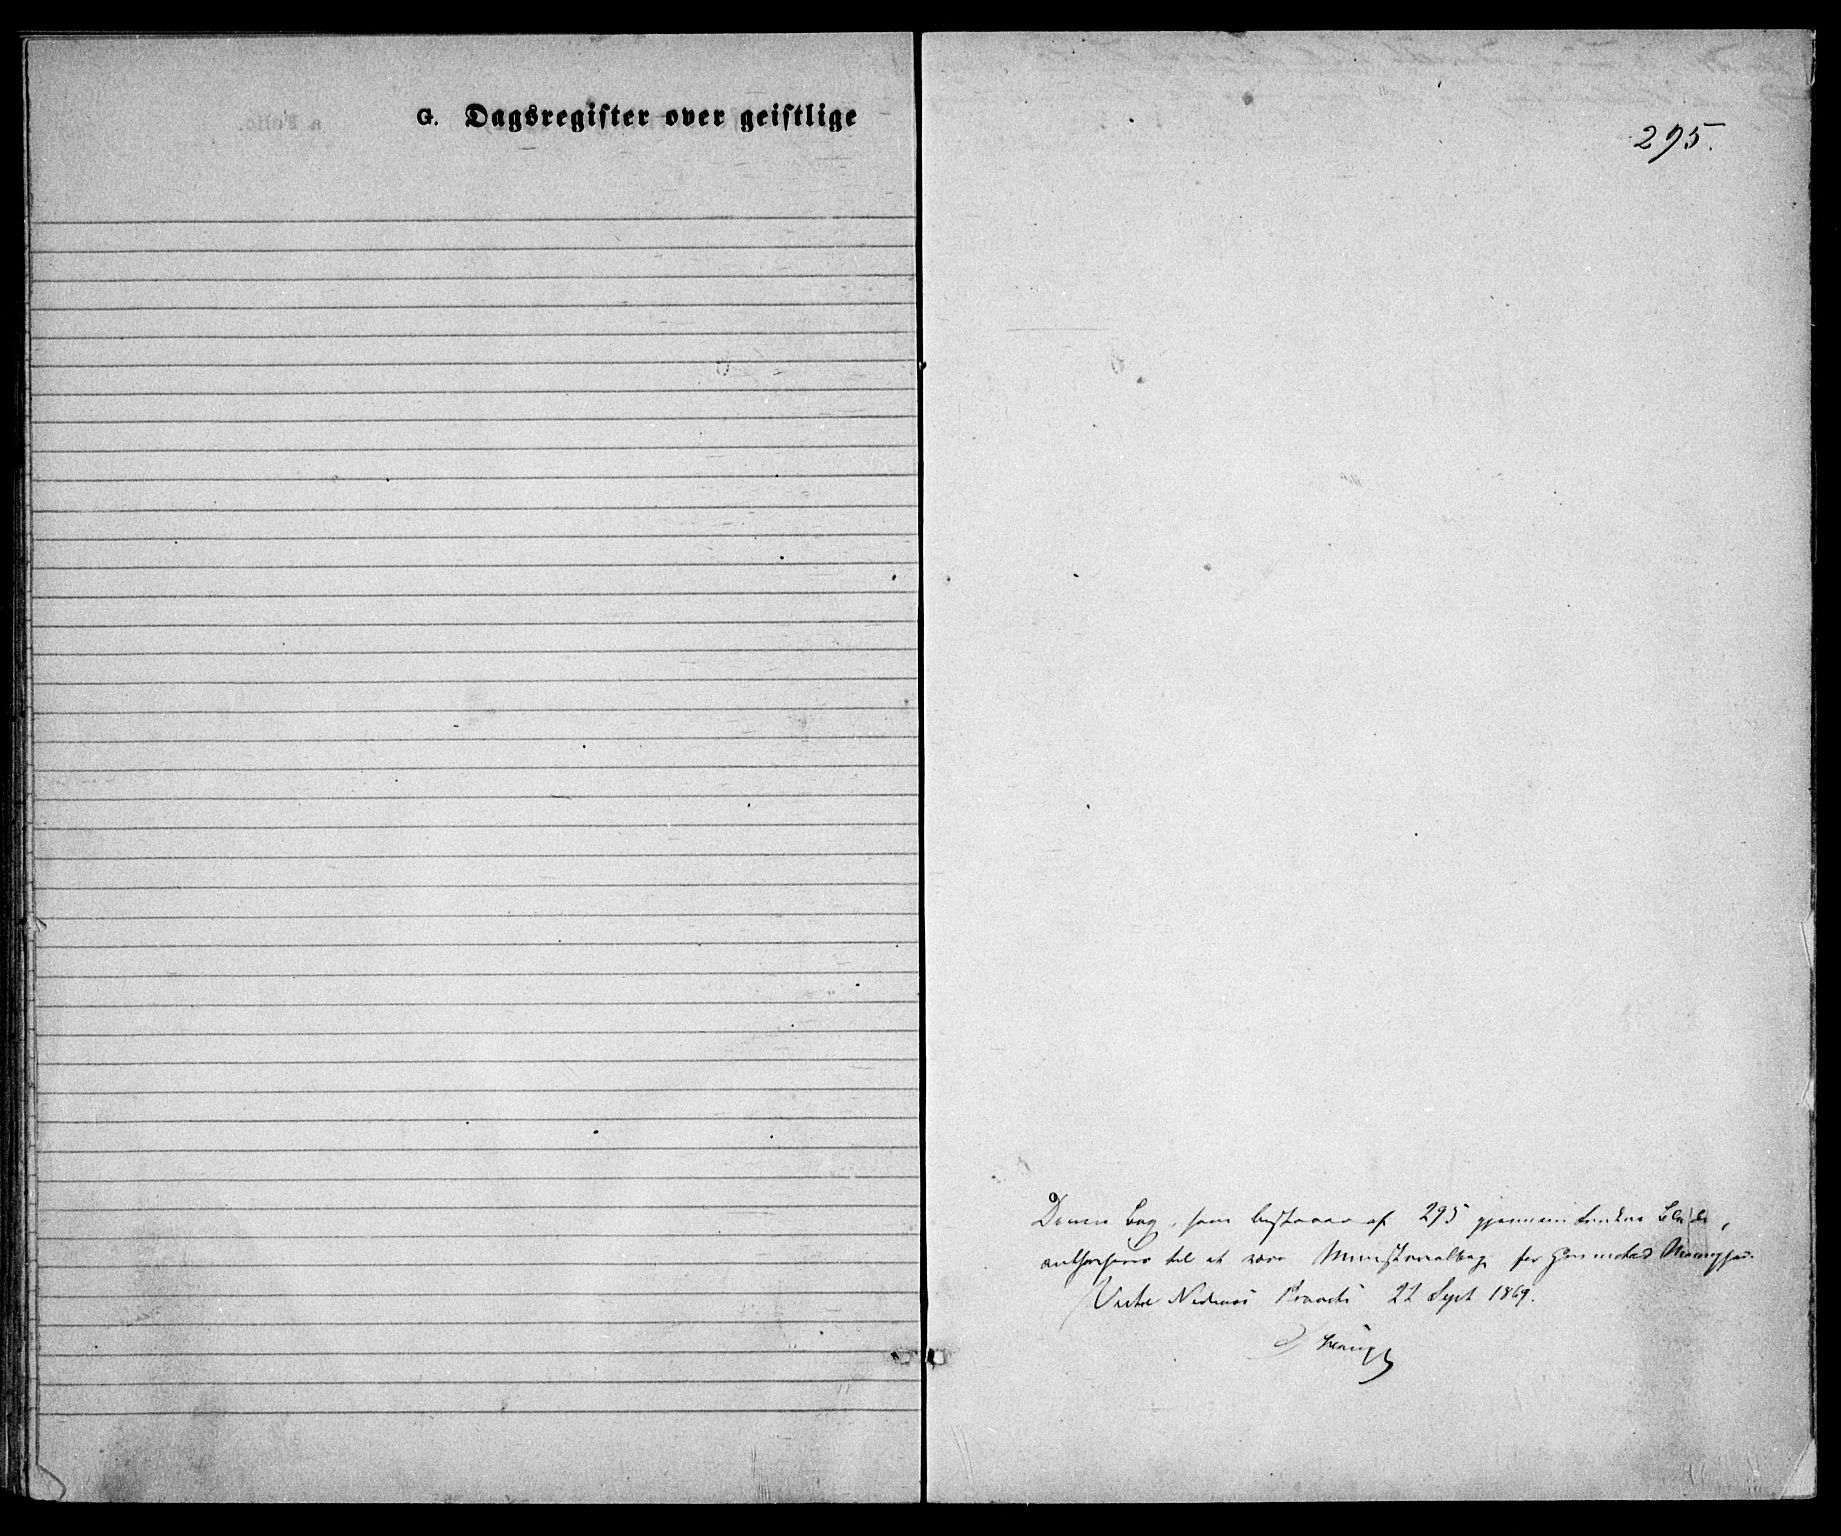 G. Dagsregister over geistlige
295.
Denne Bog, som bestaaer af 295 gjennemtrukne Blade,
authoriseres til at være Ministerialbog for
Vestre Nedenæs Provsti 22 Sept 1869.